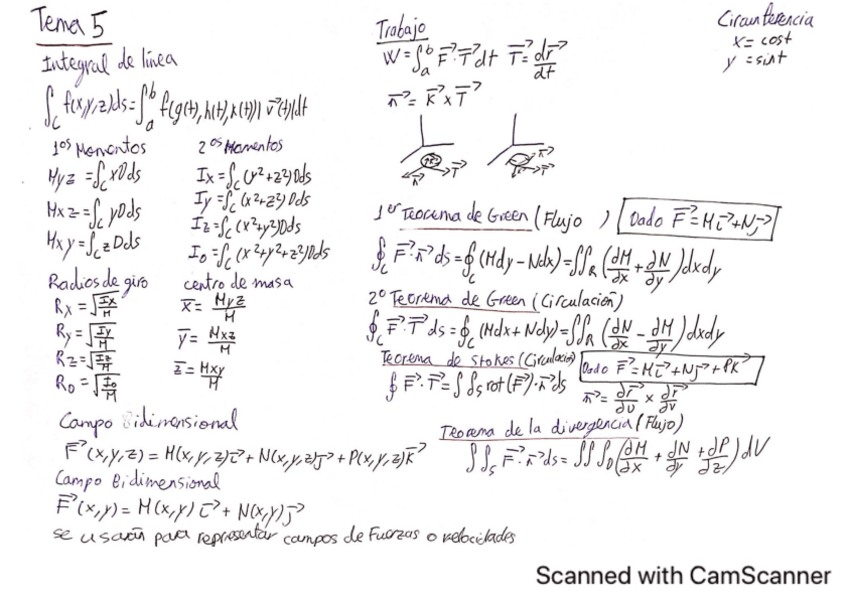 Tema 5
Integral de línea
∫_C f(x,y,z)ds = ∫_a^b f(g(t),h(t),k(t)) |v⃗(t)|dt
1os Momentos
Myz = ∫_C xDds
Mxz = ∫_C yDds
Mxy = ∫_C zDds
2os Momentos
Ix = ∫_C (y²+z²)Dds
Iy = ∫_C (x²+z²)Dds
Iz = ∫_C (x²+y²)Dds
Io = ∫_C (x²+y²+z²)Dds
Radios de giro
Rx = √(Ix/M)
Ry = √(Iy/M)
Rz = √(Iz/M)
Ro = √(Io/M)
centro de masa
x̄ = Myz/M
ȳ = Mxz/M
z̄ = Mxy/M
Campo Bidimensional
F⃗(x,y,z) = M(x,y,z)i⃗ + N(x,y,z)j⃗ + P(x,y,z)k⃗
Campo Bidimensional
F⃗(x,y) = M(x,y)i⃗ + N(x,y)j⃗
se usarán para representar campos de Fuerzas o velocidades
Trabajo
W = ∫_a^b F⃗·T⃗dt T⃗ = dr⃗/dt
n⃗ = K⃗ x T⃗
n⃗ T⃗
n⃗ T⃗
1er Teorema de Green (Flujo ) Dado F⃗ = Mi⃗+Nj⃗
∮_C F⃗·n⃗ ds = ∮_C (Mdy - Ndx) = ∬_R (∂M/∂x + ∂N/∂y) dxdy
2º Teorema de Green (Circulación)
∮_C F⃗·T⃗ ds = ∮_C (Mdx + Ndy) = ∬_R (∂N/∂x - ∂M/∂y) dxdy
Teorema de Stokes (Circulación) Dado F⃗ = Mi⃗ + Nj⃗ + PK⃗
∮ F⃗·T⃗ = ∬_S rot(F⃗)·n⃗ds n⃗ = ∂r⃗/∂u x ∂r⃗/∂v
Teorema de la divergencia (Flujo)
∬_S F⃗·n⃗ds = ∭_D (∂M/∂x + ∂N/∂y + ∂P/∂z) dV
Circunferencia
x = cost
y = sint
Scanned with CamScanner